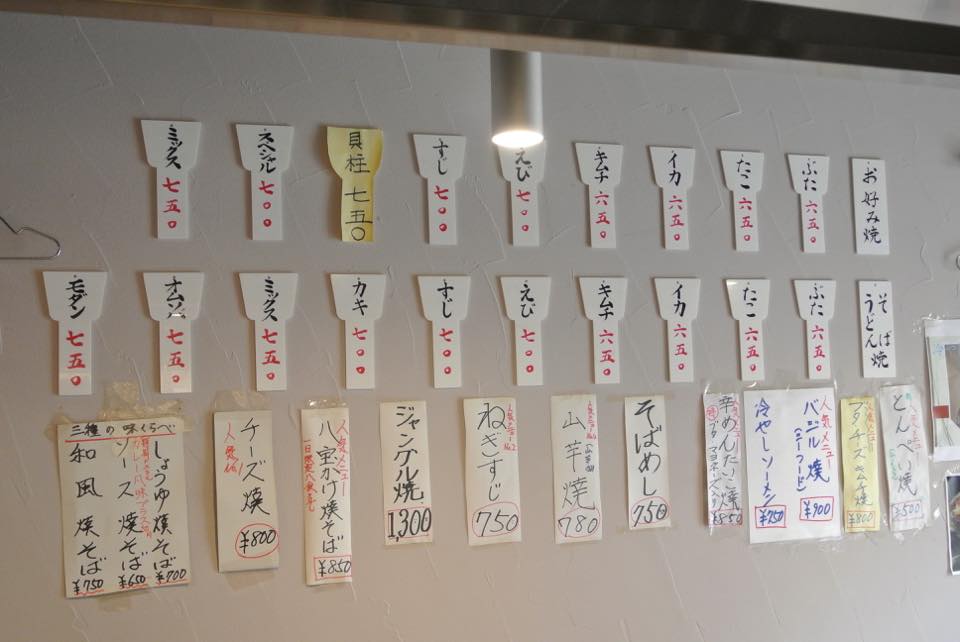 お好み焼
ぶた 六五〇
たこ 六五〇
イカ 六五〇
キムチ 六五〇
えび 七〇〇
すじ 七〇〇
貝柱 七五〇
スペシャル 七〇〇
ミックス 七五〇
そば焼
うどん
ぶた 六五〇
たこ 六五〇
イカ 六五〇
キムチ 六五〇
えび 七〇〇
すじ 七〇〇
カキ 七〇〇
ミックス 七五〇
オムソバ 七五〇
モダン 七五〇
とんぺい焼
¥500
人気メニュー
ブタチーズキムチ焼
¥800
人気メニュー
バジル焼
(シーフード)
¥900
冷やしソーメン
¥750
人気メニュー
辛めんたいこ焼
ブタマヨネーズ入り
¥850
そばめし
750
山芋焼
780
人気メニューNo.2
ねぎすじ
750
ジャンゲル焼
1,300
人気メニュー
八宝かけ焼そば
一日限定八食まで
¥850
チーズ焼
人気
¥800
三種の味くらべ
しょうゆ焼そば
¥700
ソース焼そば
¥650
和風焼そば
¥750